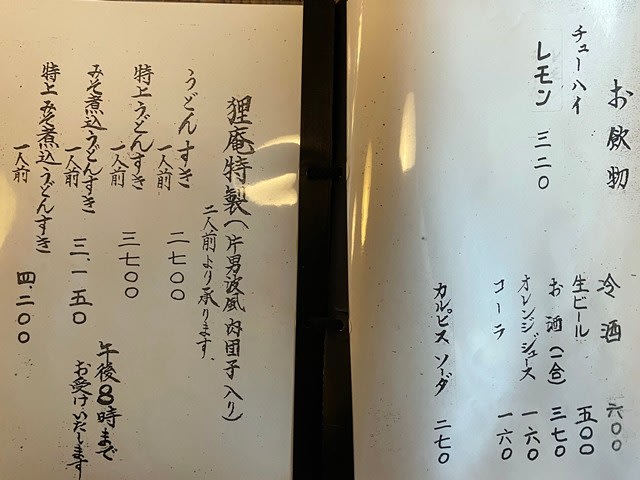 お飲物
チューハイ
レモン 三二〇
冷酒 六〇〇
生ビール 五〇〇
お酒(一合) 三七〇
オレンジジュース 一六〇
コーラ 一六〇
カルピスソーダ 二七〇
狸庵特製(片男波風肉団子入り)
二人前より承ります。
うどんすき 一人前 二七〇〇
特上うどんすき 一人前 三七〇〇
みそ煮込うどんすき 一人前 三、一五〇
特上みそ煮込うどんすき 一人前 四、二〇〇
午後8時まで
お受けいたします